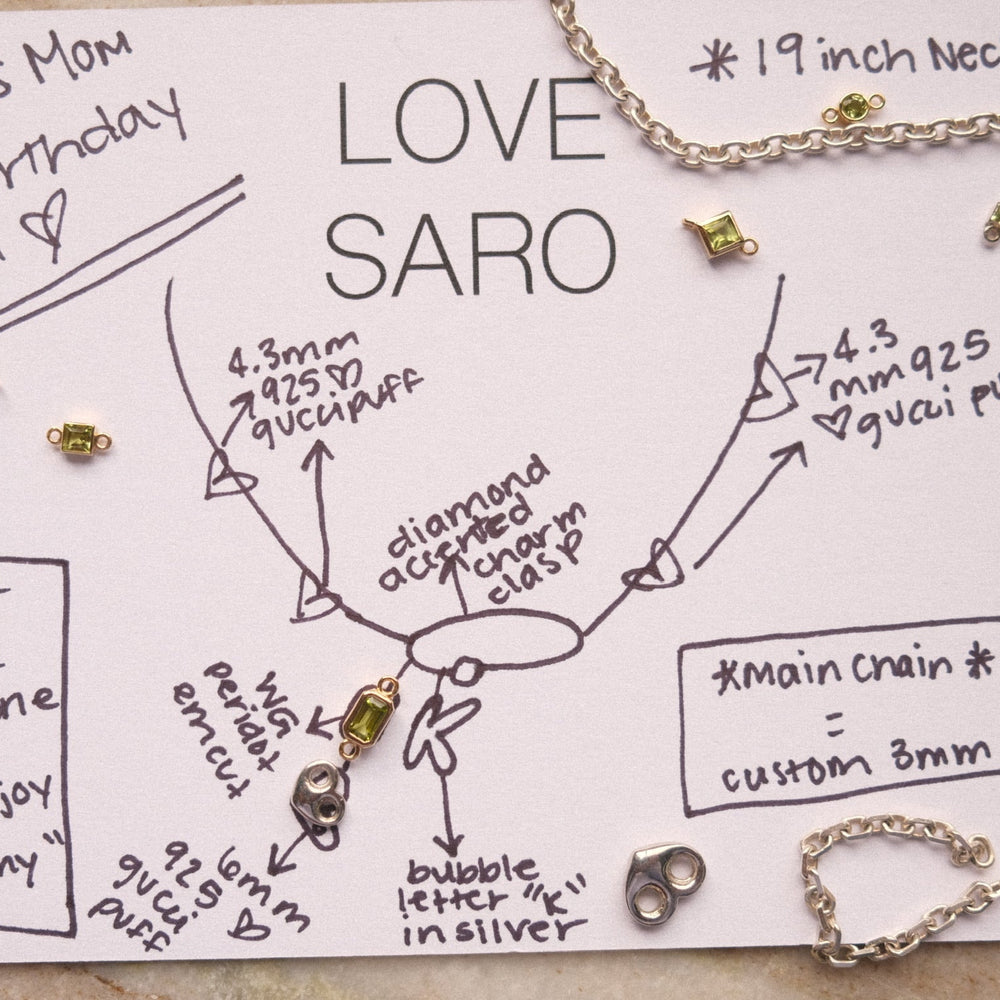 s Mom
rthday
♡
LOVE
SARO
* 19 inch Nec
4.3mm
925 ♡
gucci puff
4.3
mm 925
♡ gucci pu
diamond
accented
charm
clasp
WG
peridot
em cut
6mm ♡
925
gucci
puff
bubble
letter "K"
in silver
*Main Chain *
=
custom 3mm
ne
joy
ny"